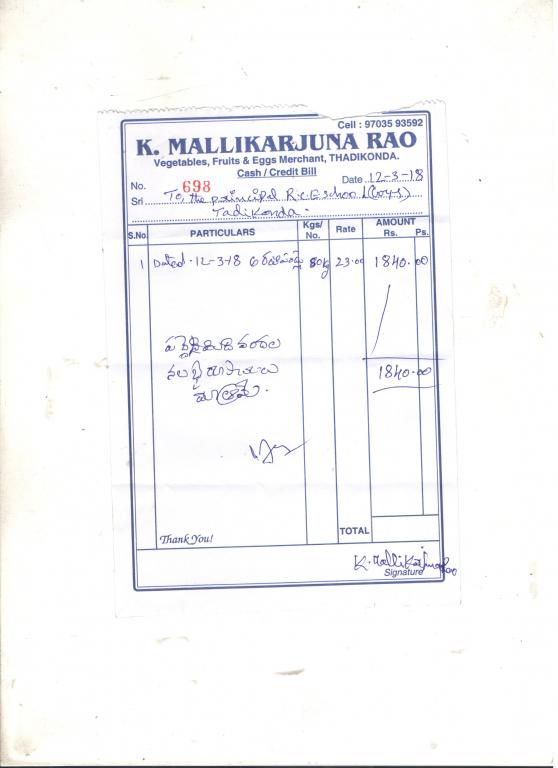 Cell : 97035 93592
K. MALLIKARJUNA RAO
Vegetables, Fruits & Eggs Merchant, THADIKONDA.
Cash / Credit Bill
No. 698
Date 12-3-18
Sri To, the principal R.C.E school (Boys)
Tadikonda.
S.No. PARTICULARS Kgs/ No. Rate AMOUNT Rs. Ps.
1 Dated. 12-3-18 80kg 23.00 1840.00
1840.00
Thank You!
TOTAL
K. Mallikarjuna Rao
Signature